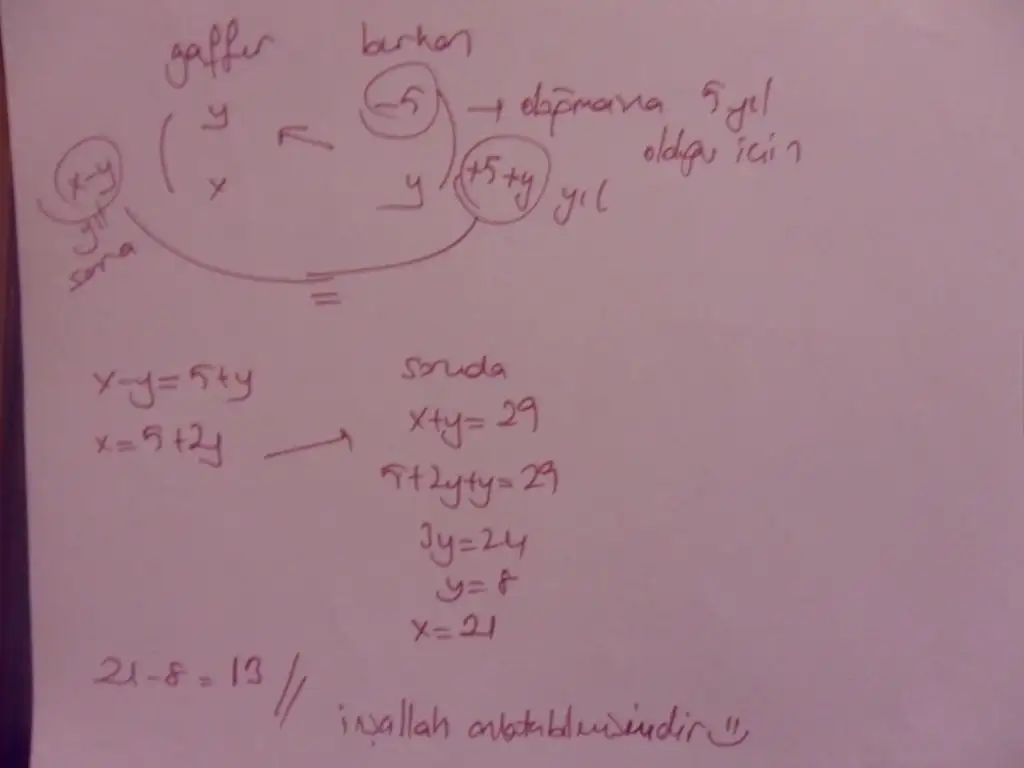 gaffur berkan
y -5 → doğmasına 5 yıl
olduğu için
x-y x y +5+y yıl
y
sonra
=
x-y=5+y soruda
x=5+2y → x+y=29
5+2y+y=29
3y=24
y=8
x=21
21-8=13 //
inşallah anlatabilmişimdir